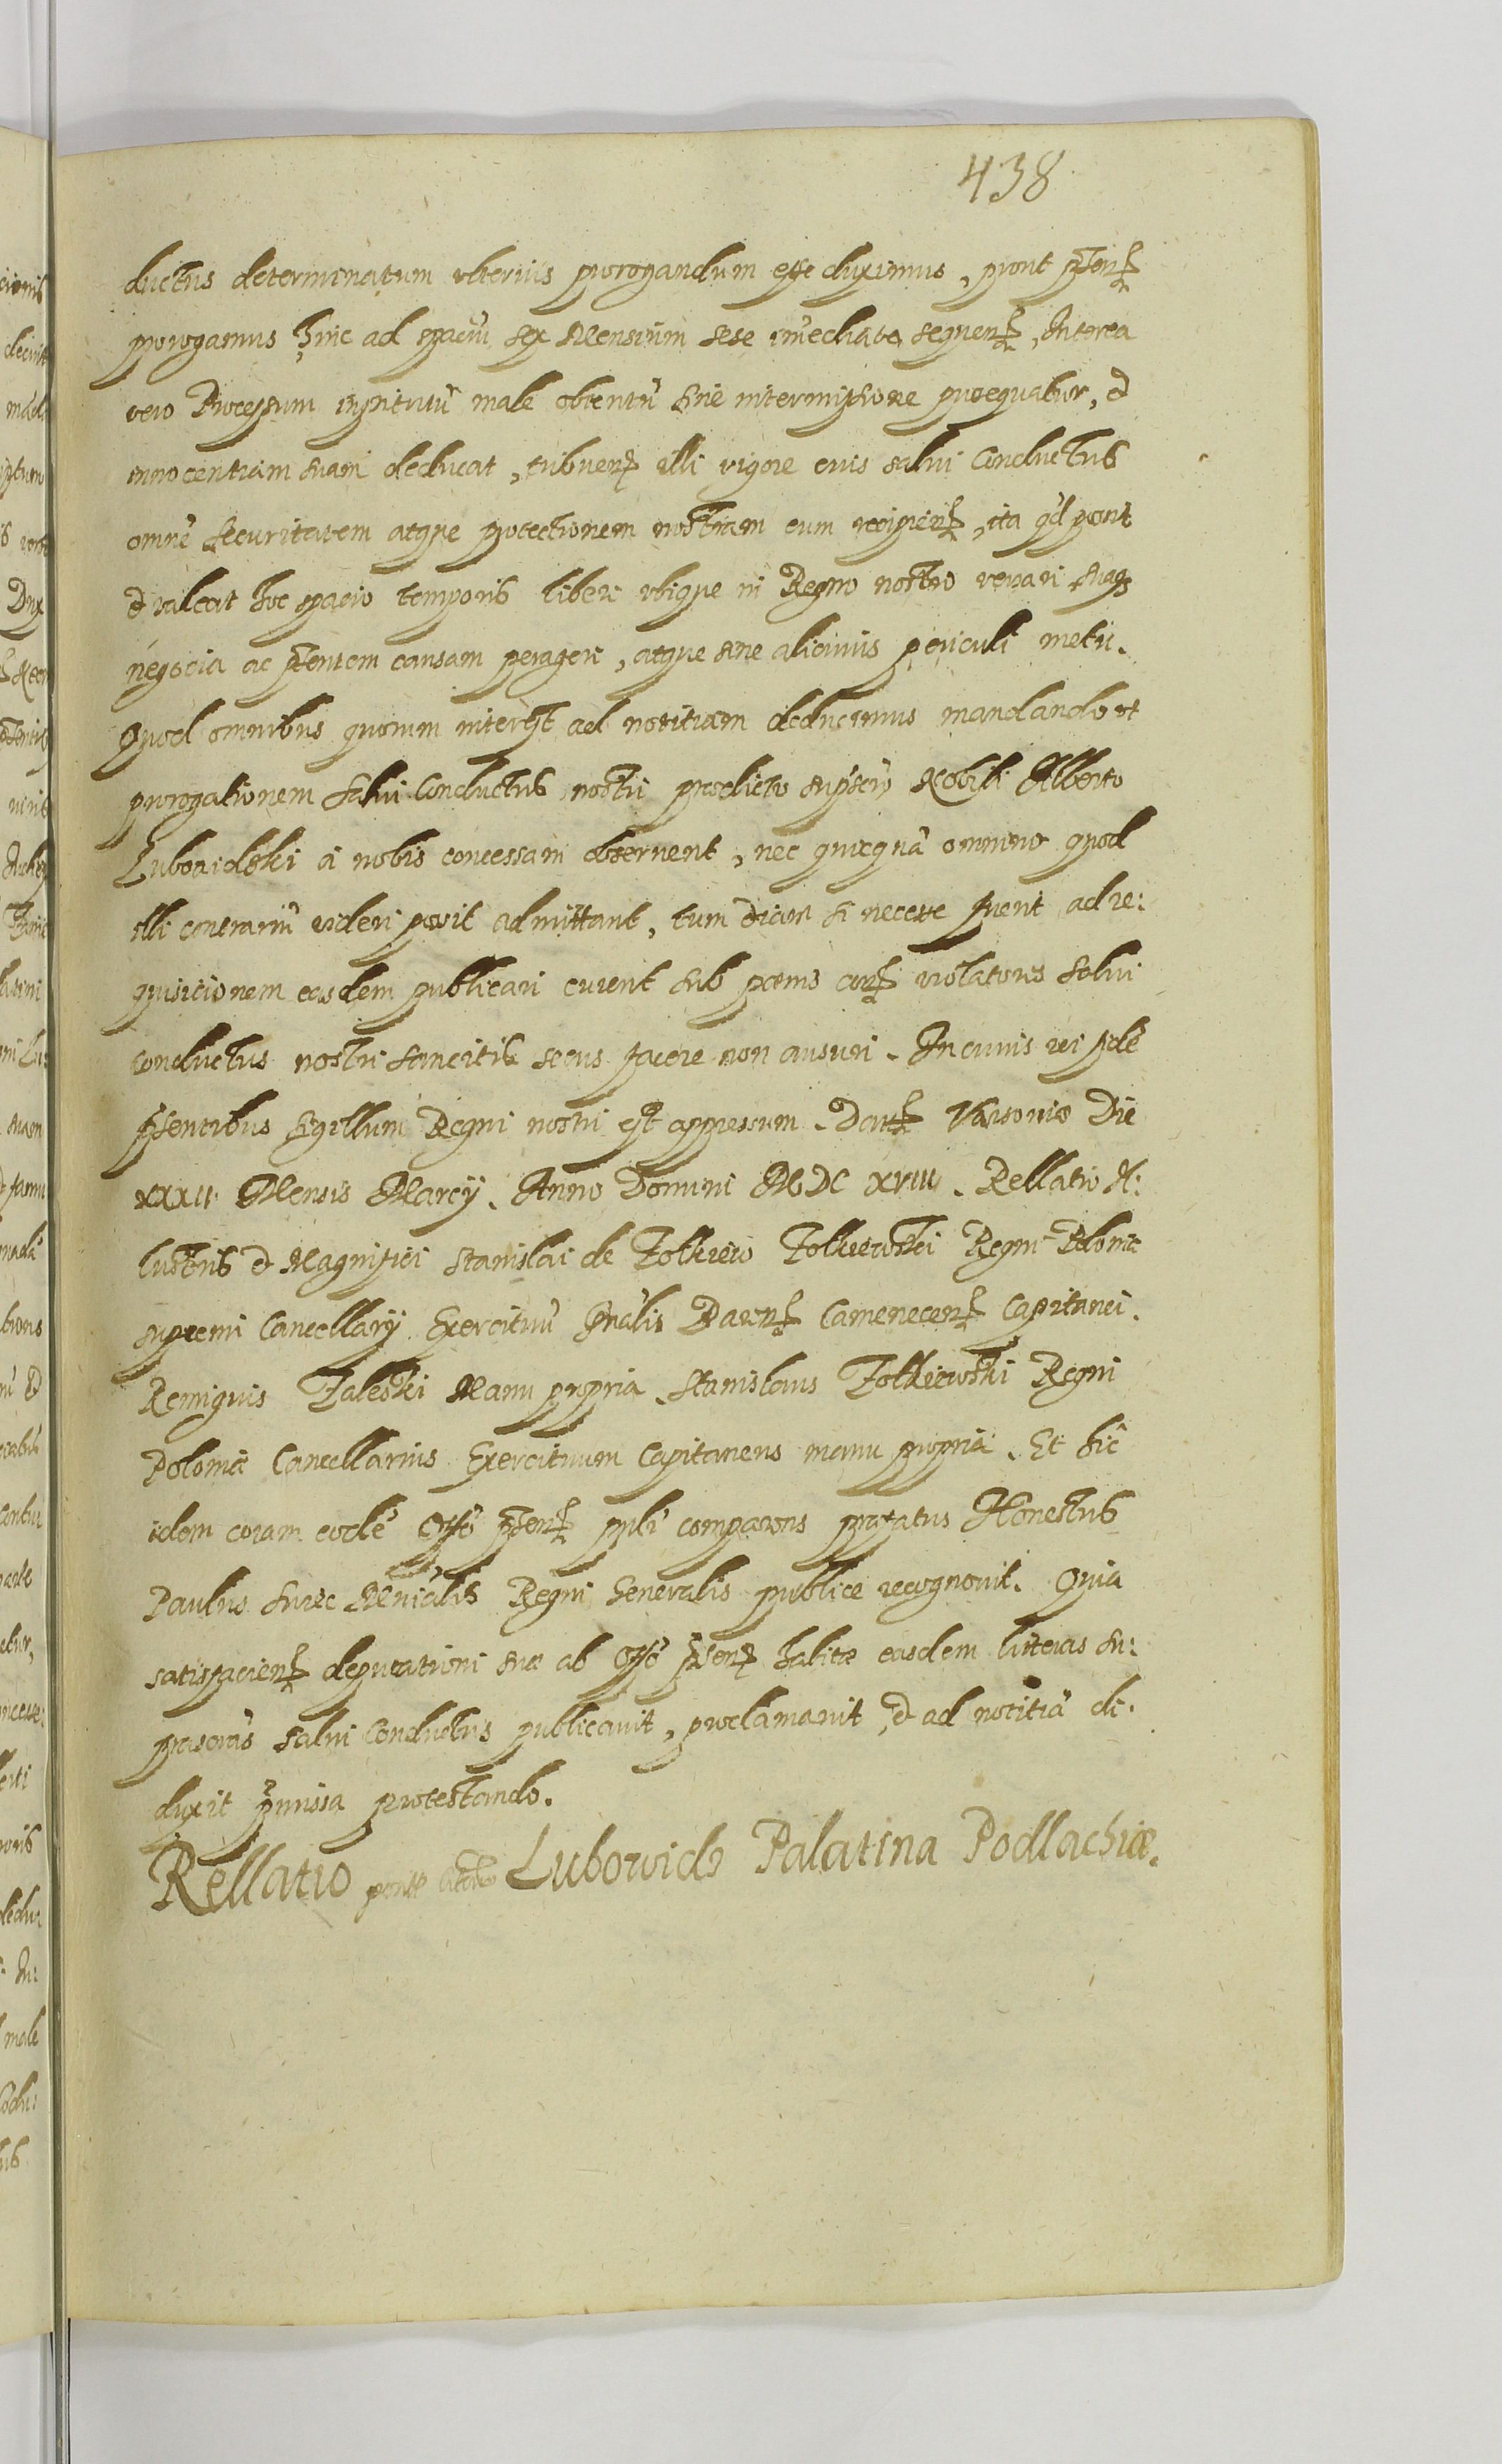 438
ductus determinatum ulterius prorogandum esse duximus, prout pñten
prorogamus hinc ad spaciũ sex Mensium sese imediate sequen, Interea
vero Processum iuxtitiũ male obtentũ sine intermissione prosequatur, et
innocentiam suam deducat, tribuen illi vigore cuius salvi Conductus
omnẽ securitatem atque protectionem nostram eum recipien, ita qd possit
et valeat hoc spacio temporis libere ubique in Regno nostro versari suaq
negocia ac pñtem causam peragere, atque sine alicuius periculi metu.
Quod omnibus quorum interest ad notitiam deducimus mandando ut
prorogationem Salvi Conductus nostri praedicto Nobili Alberto
Lubowidski a nobis concessam observent, nec quicquã omnino quod
illi contrariũ videri possit admittant, tum etiam si necesse fuerit ad re:
quisicionem eiusdem publicari curent sub poenis con violatores Salvi
conductus nostri sancitis secus facere non ausuri. In cuius rei fidẽ
pñtibus Sigillum Regni nostri est appressum. Dat Varsoviæ Die
xxxii Mensis Marcÿ. Anno Domini MDC XVIII. Rellatio Il:
lustris et Magnifici Stanislai de Zolkiew Zolkiewski Regni Poloniæ
supremi Cancellarÿ Exercituũ Gñalis Baren Camenecen Capitanei.
Remigius Zaleski Manu propria. Stanislaus Zolkiewski Regni
Poloniæ Cancellarius Exercituum Capitaneus manu propria. Et hic
idem coram eodẽ Offõ pñten ppli comparens præfatus Honestus
Paulus Miñialis Regni Generalis publice recognovit. Quia
satisfacien deputationi suæ ab Offõ pñten habitæ easdem litteras su:
prascrãs Salvi Conductus publicavit, proclamavit, et ad notitiã de:
duxit pmissa protestando.
Rellatio Lubowids Palatina Podlachiæ.